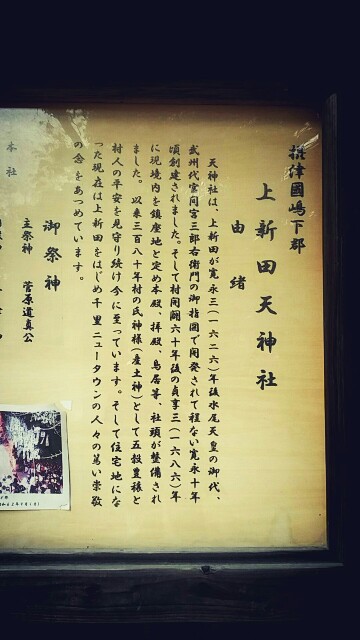 摂津國嶋下郡
上新田天神社
由緒
天神社は、上新田が寛永三(一六二六)年後水尾天皇の御代、
武州代官間宮三郎右衛門の御指図で開発されて程ない寛永十年
頃創建されました。そして村開闢六十年後の貞享三(一六八六)年
に現境内を鎮座地と定め本殿、拝殿、鳥居等、社頭が整備され
ました。以来三百八十年村の氏神様(産土神)として五穀豊穣と
村人の平安を見守り続け今に至っています。そして住宅地にな
った現在は上新田をはじめ千里ニュータウンの人々の篤い崇敬
の念をあつめています。
御祭神
主祭神 菅原道真公
本社